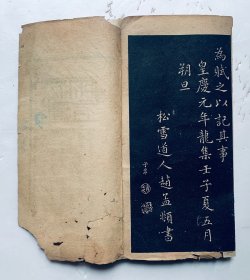 為賦之以記其事
皇慶元年龍集壬子夏五月
朔旦
松雪道人趙孟頫書